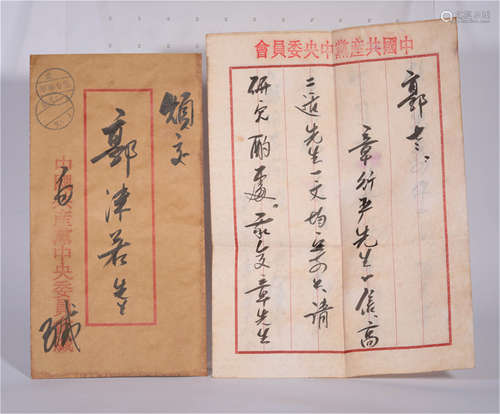 煩交
郭沫若先生
中國共產黨中央委員會
緘
中國共產黨中央委員會
郭老：
章行严先生一信，高
二适先生一文均寄上，请
研究酌處。我复章先生